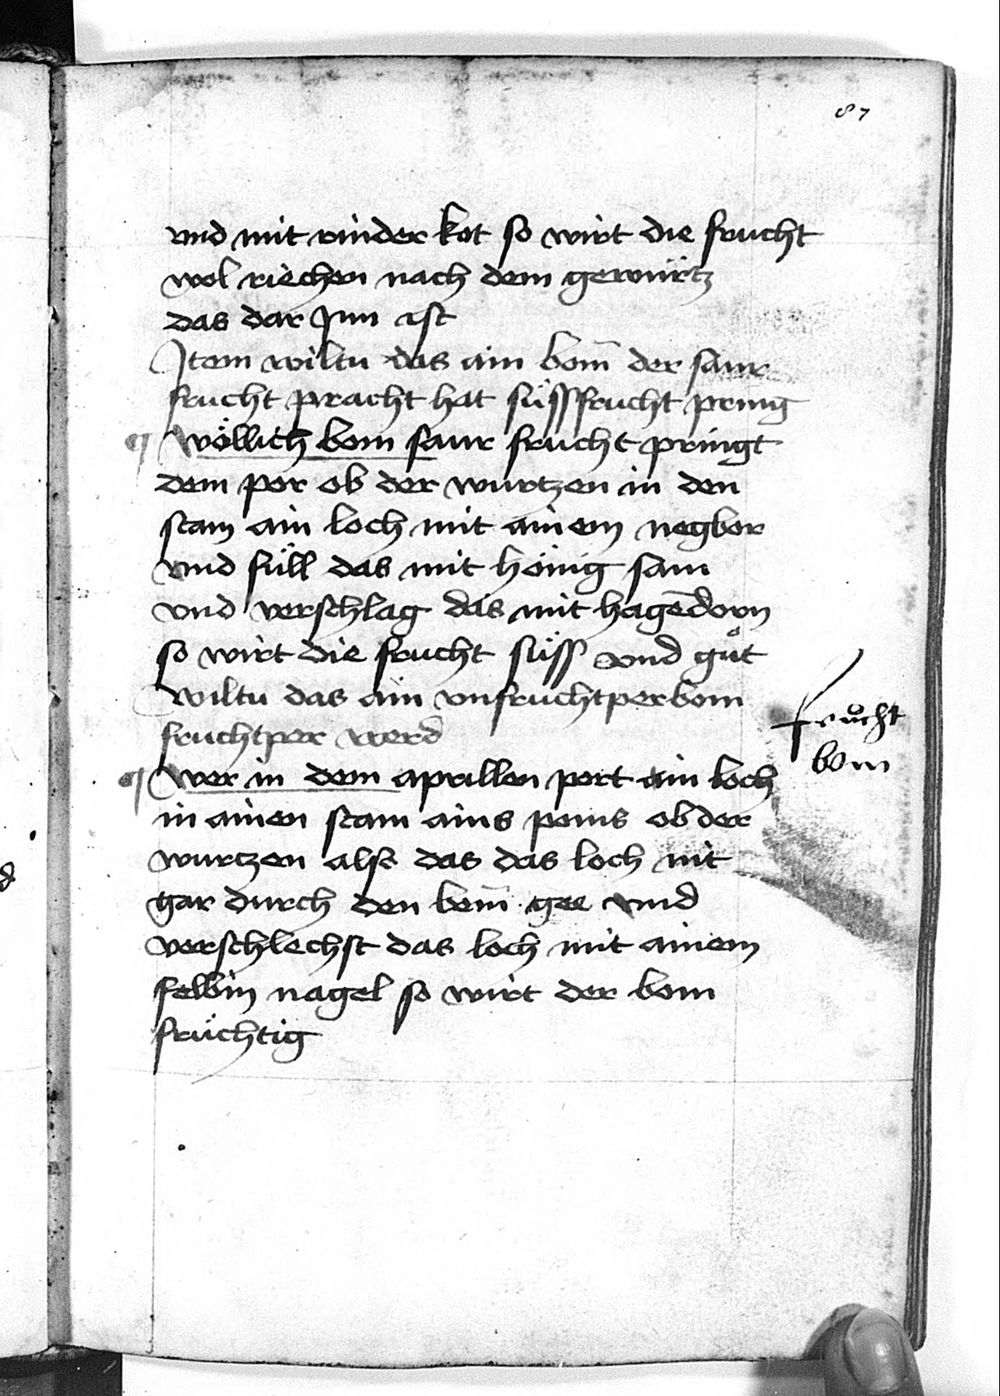 87
vnd mit rinder kot so wirt die frucht
wol riechen nach dem gewürtz
das dar Jnn ist
Jtem wiltu das ain bom̄ der saur
frucht pracht hat süssfrucht pring
wöllich bom saur frucht pringt
dem por ob der wurtzen in den
stam ain loch mit ainem negbor
vnd füll das mit hönig sam
vnd verschlag das mit hagēdorn
so wirt die frucht süss vnd gůt
wiltu das ain vnfruchtperbom
fruchtper werd
frůcht
bom
wer in dem aprillen port ain loch
in ainen stam ains poms ob der
wurtzen also das das loch nit
gar durch den bem̄ gee vnd
verschlechst das loch mit ainem
felbin nagel so wirt der bom
früchtig